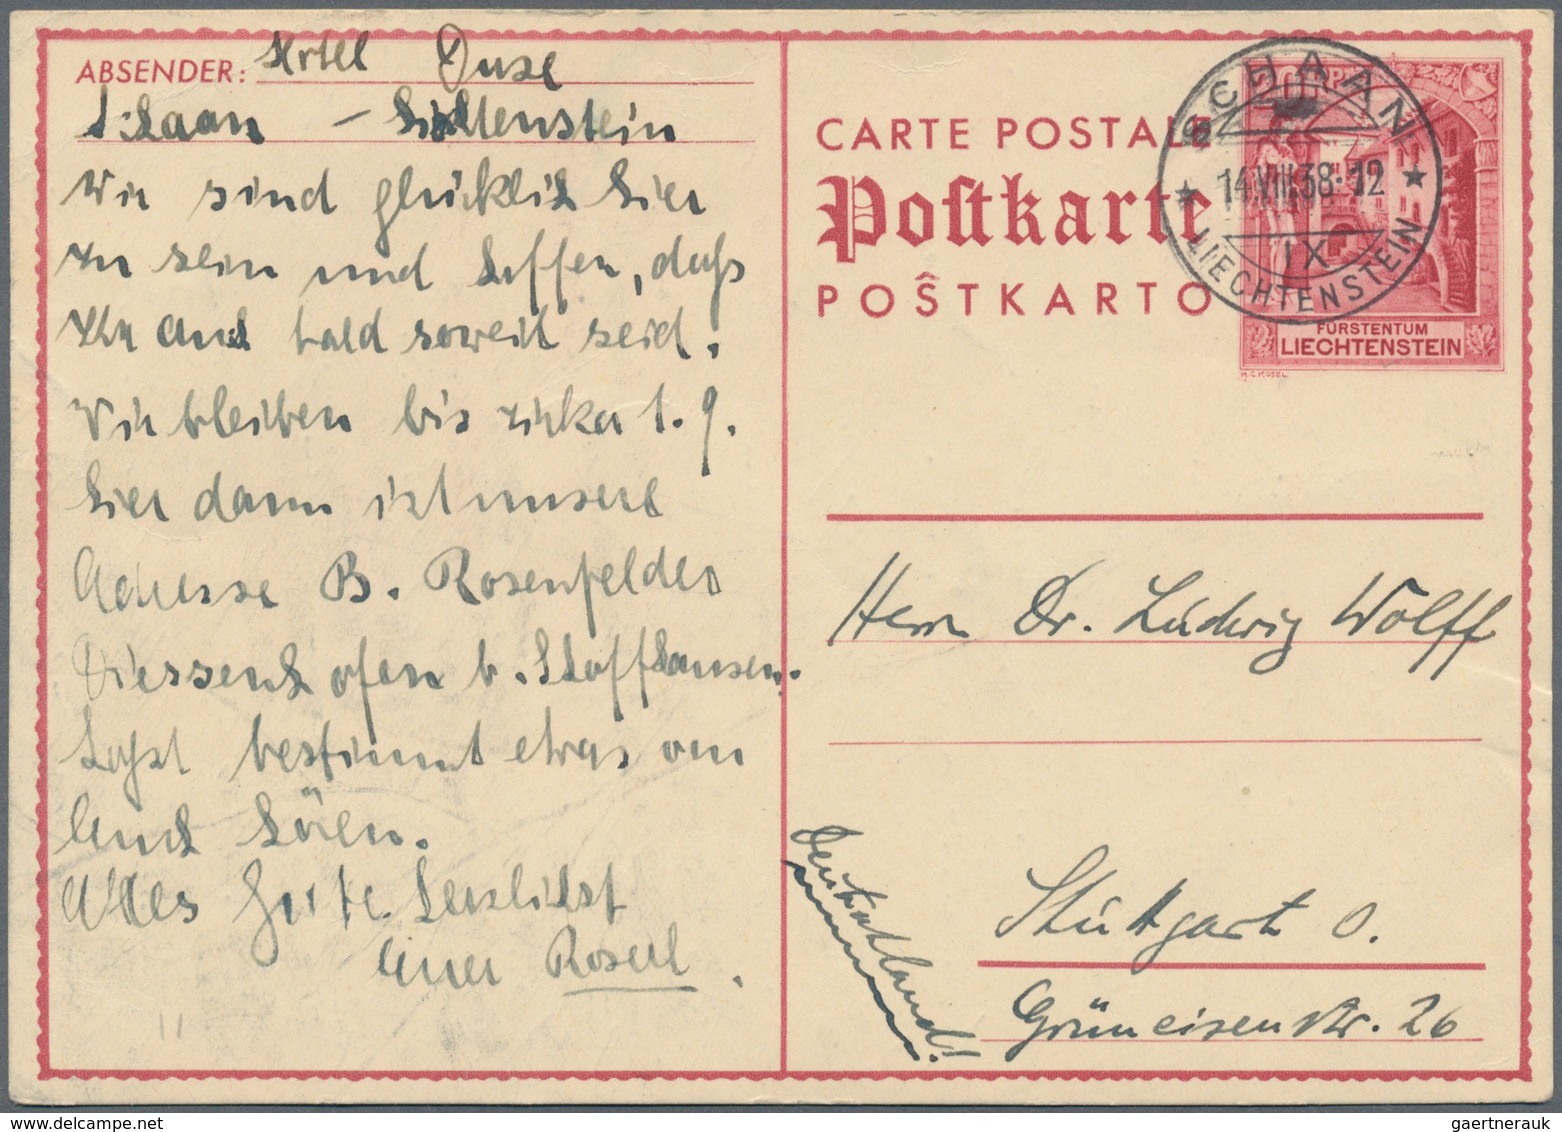 ABSENDER: Hotel Duxe
Schaan – Lichtenstein
Wir sind glücklich hier
zu sein und hoffen, daß
Ihr auch bald soweit seid.
Wir bleiben bis zirka 1. 9.
hier dann ist unsere
Adresse B. Rosenfelder
Diessenhofen b. Schaffhausen.
Laßt bestimmt etwas von
Euch hören.
Alles Gute. Herzlichst
Euer Roserl.
CARTE POSTALE
Postkarte
POŜTKARTO
SCHAAN
14.VIII.38-12
IX
LIECHTENSTEIN
FÜRSTENTUM
LIECHTENSTEIN
H.C. KOSEL
Herrn Dr. Ludwig Wolff
Stuttgart O.
Grüneisenstr. 26
Deutschland!
gaertnerauk